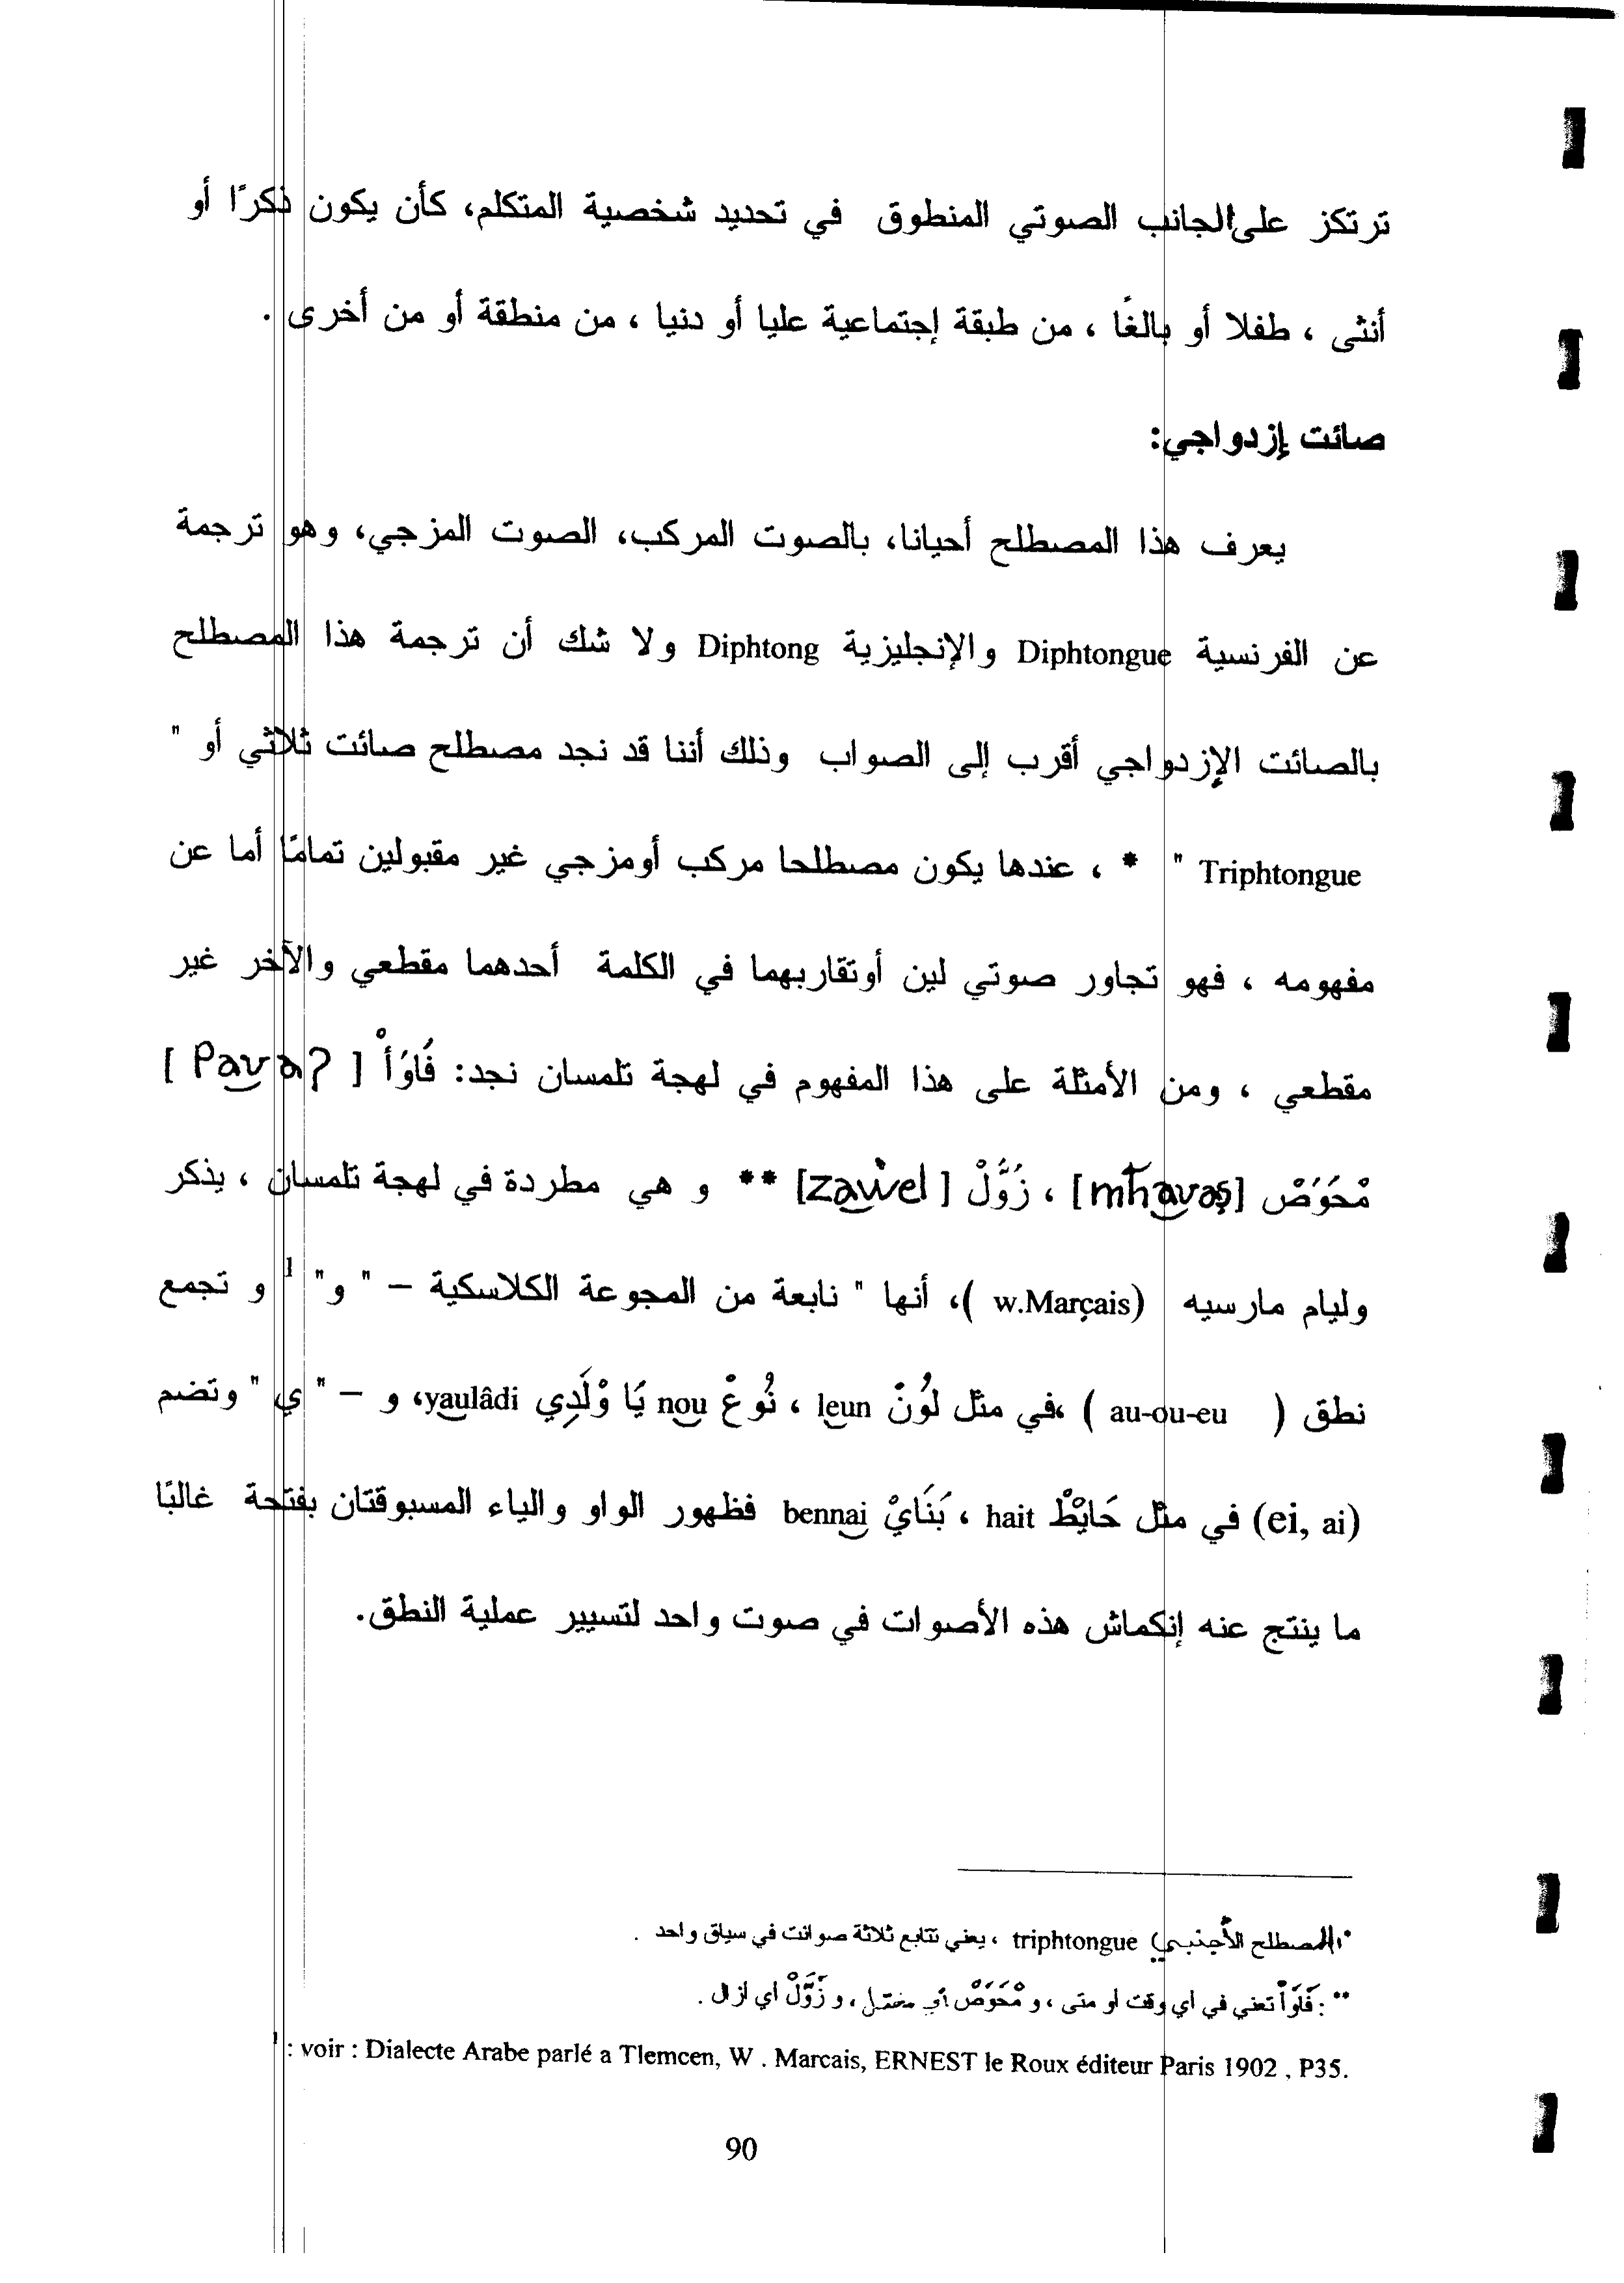 ترتكز على الجانب الصوتي المنطوق في تحديد شخصية المتكلم، كأن يكون ذكرًا أو
أنثى ، طفلا أو بالغًا ، من طبقة إجتماعية عليا أو دنيا ، من منطقة أو من أخرى .
صائت إزدواجي:
يعرف هذا المصطلح أحيانا، بالصوت المركب، الصوت المزجي، وهو ترجمة
عن الفرنسية Diphtongue والإنجليزية Diphtong ولا شك أن ترجمة هذا المصطلح
بالصائت الإزدواجي أقرب إلى الصواب وذلك أننا قد نجد مصطلح صائت ثلاثي أو "
Triphtongue " * ، عندها يكون مصطلحا مركب أومزجي غير مقبولين تمامًا أما عن
مفهومه ، فهو تجاور صوتي لين أوتقاربهما في الكلمة أحدهما مقطعي والآخر غير
مقطعي ، ومن الأمثلة على هذا المفهوم في لهجة تلمسان نجد: فَاوَأْ [ Pava? ]
مْحَوَصْ [mhavaṣ] ، زَوَّلْ [zawel] ** و هي مطردة في لهجة تلمسان ، يذكر
وليام مارسيه (w.Marçais )، أنها " نابعة من المجوعة الكلاسكية – " و" 1 و تجمع
نطق ( au-ou-eu ) ،في مثل لوُنْ leun ، نُوعْ nou يَا وْلَدِي yaulâdi، و – " ي " وتضم
(ei, ai) في مثل حَايْطْ hait ، بَنَايْ bennai فظهور الواو والياء المسبوقتان بفتحة غالبًا
ما ينتج عنه إنكماش هذه الأصوات في صوت واحد لتسيير عملية النطق.
*المصطلح الأجنبي triphtongue ، يعني تتابع ثلاثة صوائت في سياق واحد .
** : فَاوَأْ تعني في اي وقت او متى ، و مْحَوَصْ أي مختل ، و زَوَّلْ اي ازال .
1 : voir : Dialecte Arabe parlé a Tlemcen, W . Marcais, ERNEST le Roux éditeur Paris 1902 , P35.
90